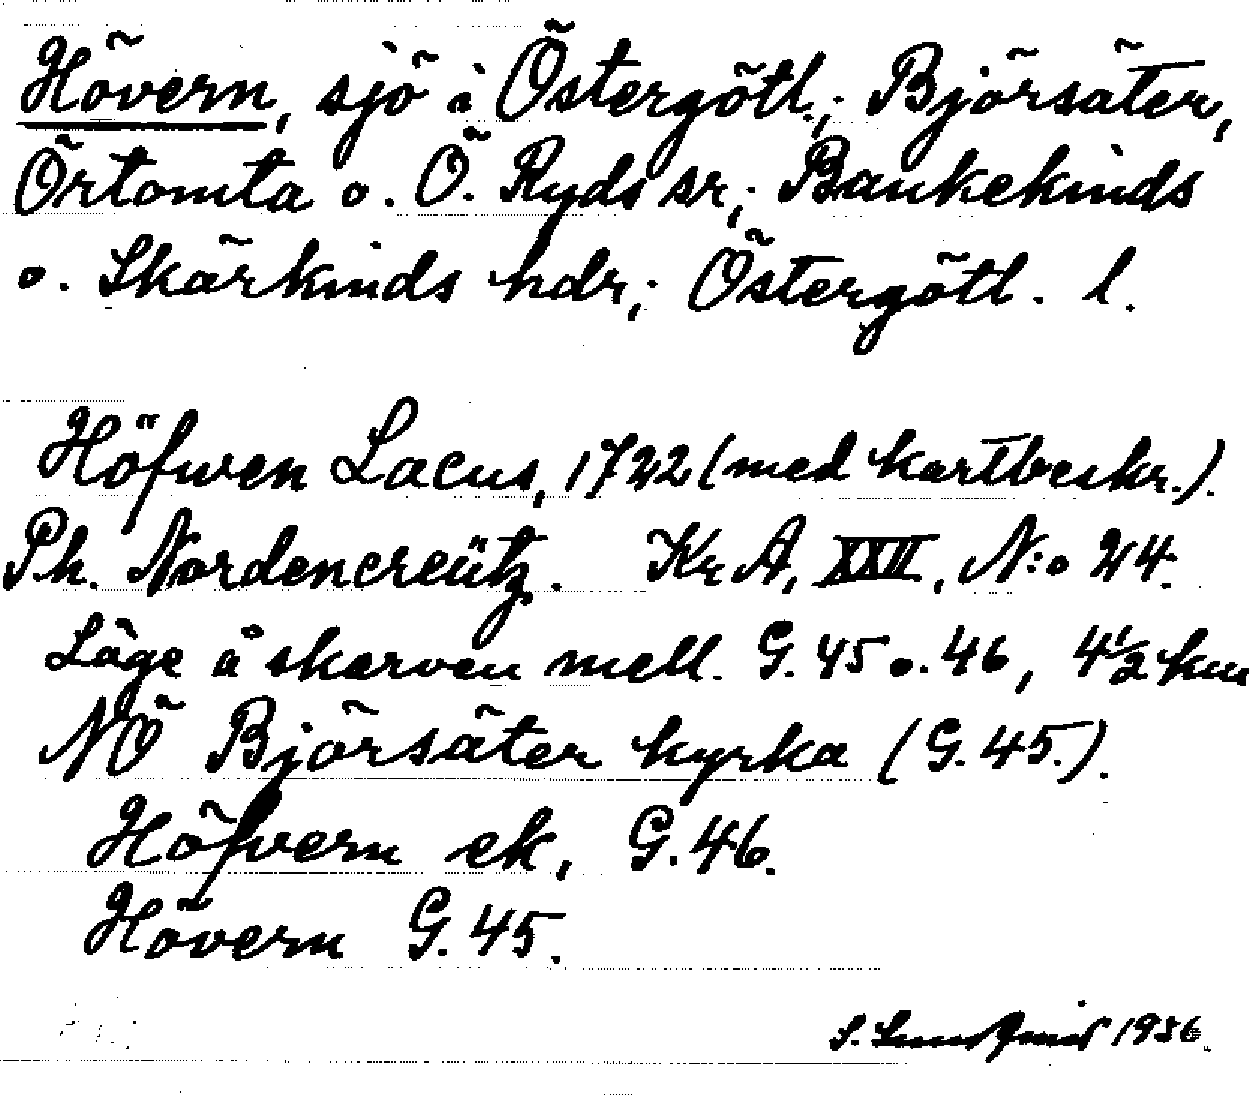 Hövern, sjö i Östergötl.; Björsäter,
Örtomta o. Ö. Ryds sr; Bankekinds
o. Skärkinds hdr; Östergötl. l.
Höfwen Lacus, 1722 (med kartbeskr.).
Ph. Nordencreütz. Kr A, XXII, N:o 24.
Läge å skarven mell. G. 45 o. 46, 4 1/2 km
NÖ Björsäter kyrka (G. 45.).
Höfvern ek, G. 46.
Hövern G. 45.
S. 1936